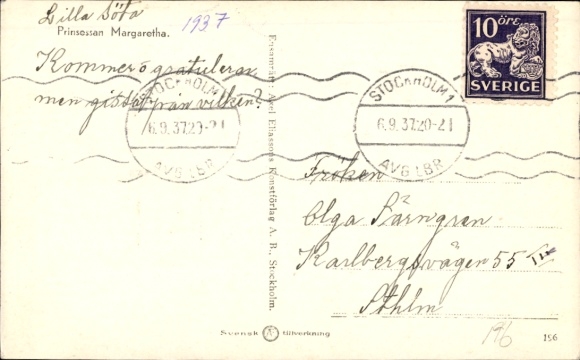 Lilla Söta
1937
Prinsessan Margaretha.
Kommer o gratulerar
men gissa från vilken?
STOCKHOLM 1
6.9.37.20-21
AVG LBR
STOCKHOLM 1
6.9.37.20-21
AVG LBR
10 ÖRE
SVERIGE
Ensamrätt: Axel Eliassons Konstförlag A. B., Stockholm.
Fröken
Olga Bärngren
Karlbergsvägen 55
Sthlm
Svensk A tillverkning
196
196